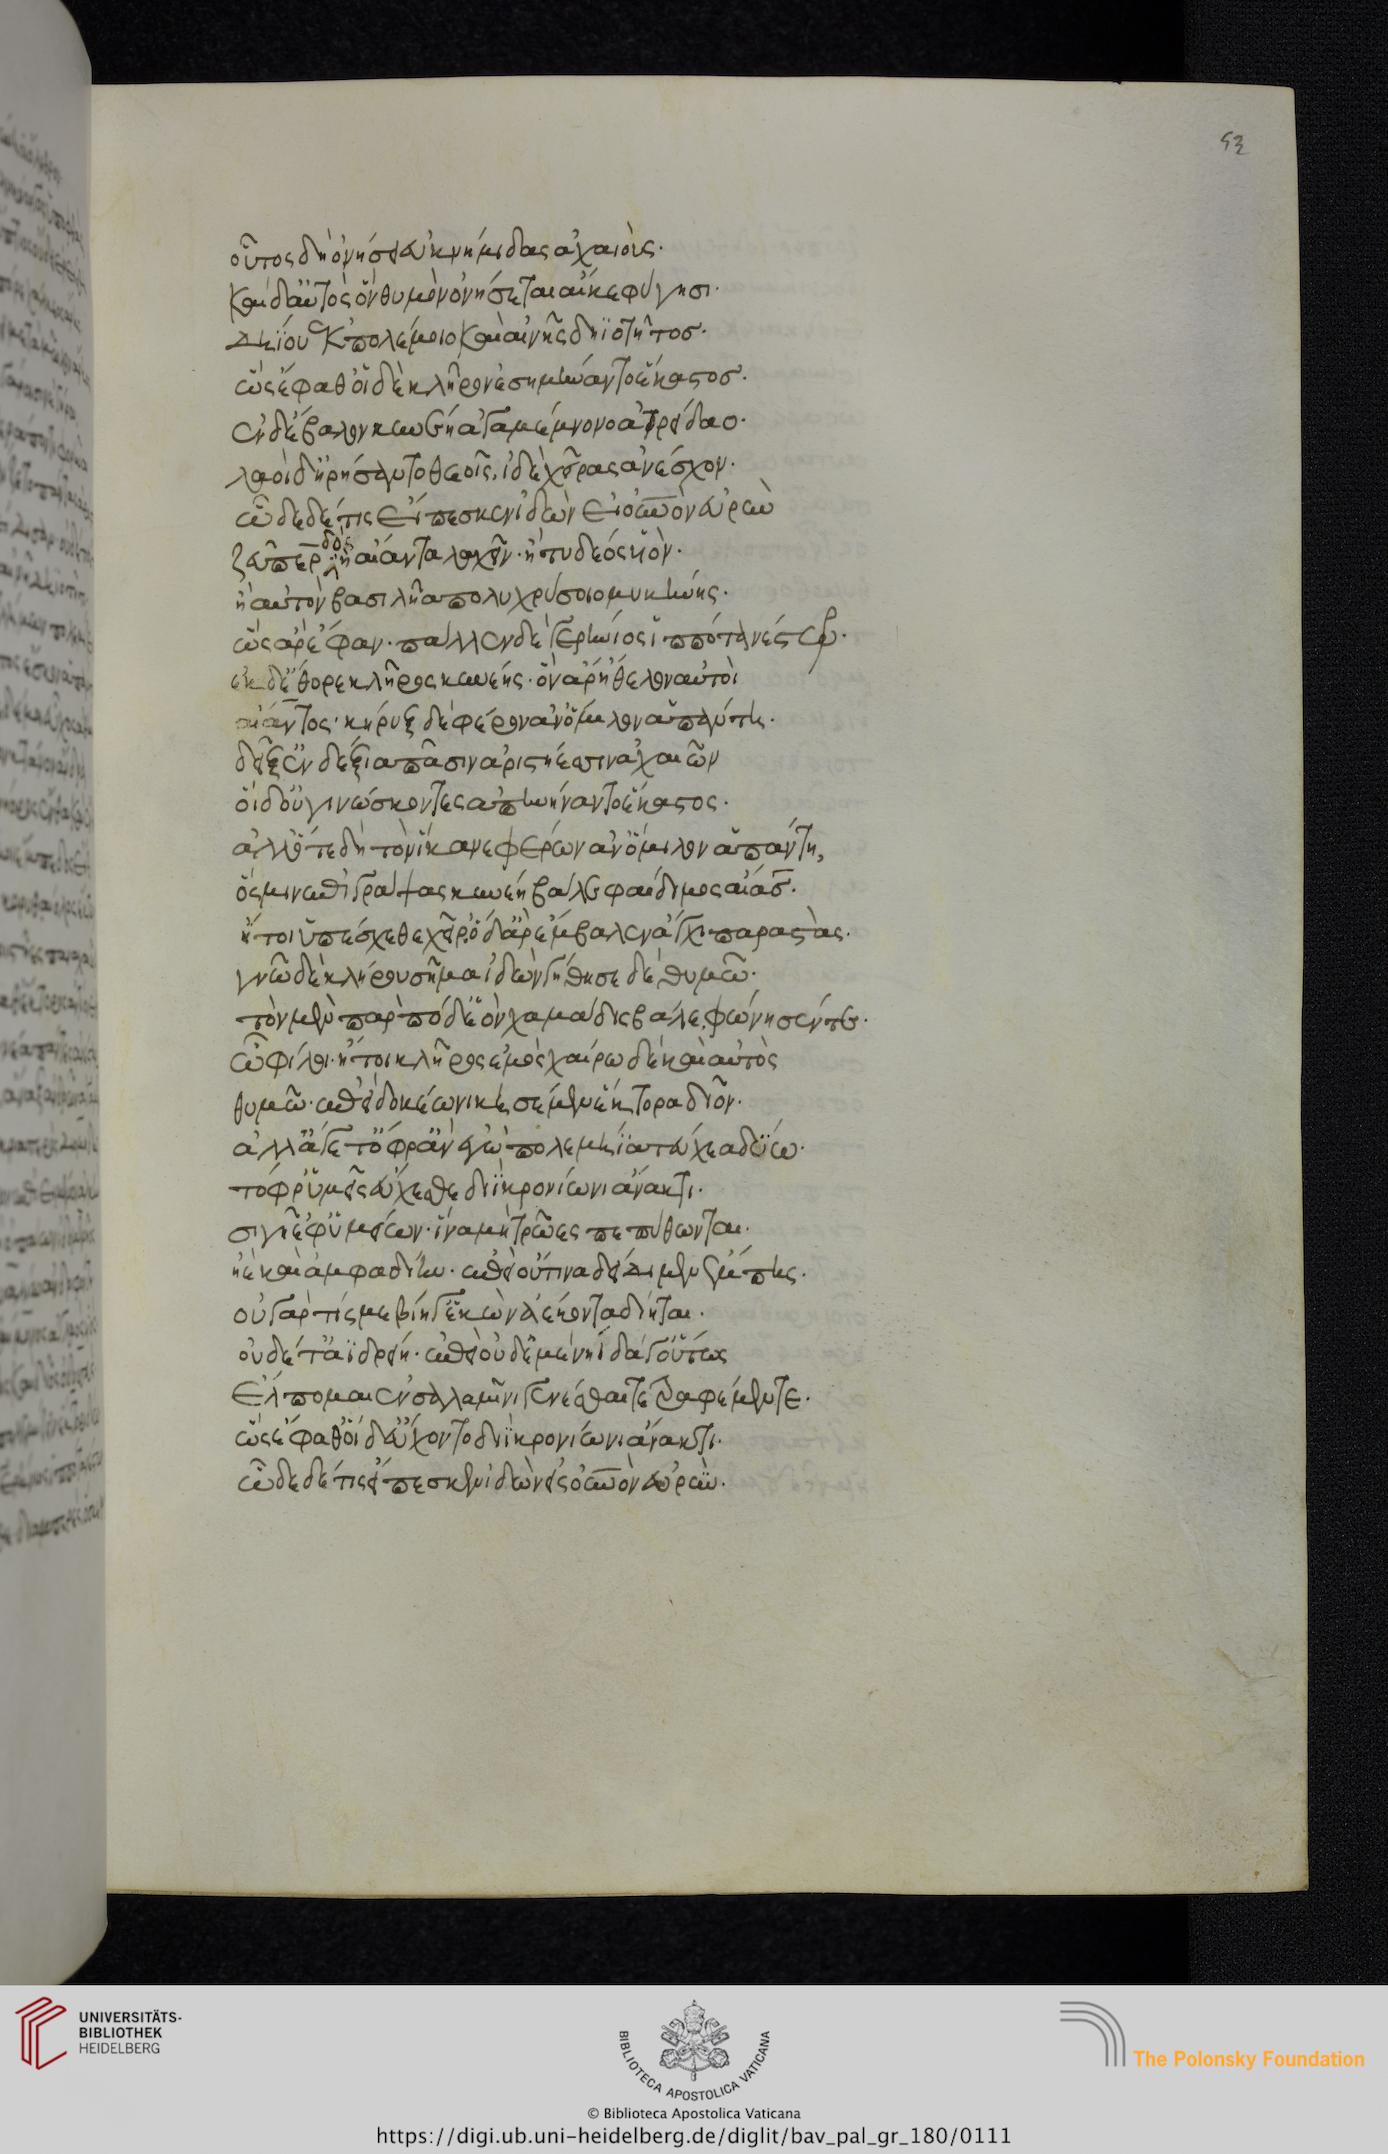 53
οὗτος δὴ ὀνήσει ἐϋκνήμιδας ἀχαιούς·
καὶ δ' αὐτὸς ὃν θυμὸν ὀνήσεται αἴκε φύγησι·
δηΐου ἐκ πολέμοιο καὶ αἰνῆς δηϊοτῆτος·
ὣς ἔφαθ' οἳ δὲ κλῆρον ἐσημήναντο ἕκαστος·
ἐν δ' ἔβαλον κυνέη ἀγαμέμνονος ἀτρείδαο·
λαοὶ δ' ἠρήσαντο θεοῖς, ἰδὲ χεῖρας ἀνέσχον·
ὧδε δέ τις εἴπεσκεν ἰδὼν εἰς οὐρανὸν εὐρὺν
ζεῦ πάτερ δὸς ἢ αἴαντα λαχεῖν· ἢ τυδέος υἱόν·
ἢ αὐτὸν βασιλῆα πολυχρύσοιο μυκήνης·
ὣς ἄρ' ἔφαν· πάλλεν δὲ γερήνιος ἱππότα νέστωρ·
ἐκ δ' ἔθορε κλῆρος κυνέης· ὃν ἄρ' ἤθελον αὐτοὶ
αἴαντος· κῆρυξ δὲ φέρων ἀν' ὅμιλον ἁπάντη·
δεῖξ' ἐνδέξια πᾶσιν ἀριστήεσσιν ἀχαιῶν
οἱ δ' οὐ γινώσκοντες ἀπηνήναντο ἕκαστος·
ἀλλ' ὅτε δὴ τὸν ἵκανε φέρων ἀν' ὅμιλον ἁπάντη,
ὅς μιν ἐπιγράψας κυνέη βάλε φαίδιμος αἴας·
ἤτοι ὑπέσχεθε χεῖρ' ὁ δ' ἄρ' ἔμβαλεν ἄγχι παραστάς·
γνῶ δὲ κλήρου σῆμα ἰδὼν γήθησε δὲ θυμῶ·
τὸν μὲν πὰρ πόδ' ἑὸν χαμάδις βάλε, φώνησέν τε·
ὦ φίλοι· ἤτοι κλῆρος ἐμὸς χαίρω δὲ καὶ αὐτὸς
θυμῶ· ἐπεὶ δοκέω νικησέμεν ἕκτορα δῖον·
ἀλλ' ἄγετ' ὄφρ' ἂν ἐγὼ πολεμήϊα τεύχεα δύω·
τόφρ' ὑμεῖς εὔχεσθε διῒ κρονίωνι ἄνακτι·
σιγῆ ἐφ' ὑμείων· ἵνα μὴ τρῶες πεπύθωνται·
ἠὲ καὶ ἀμφαδίην· ἐπεὶ οὔτινα δείδιμεν ἔμπης·
οὐ γάρ τίς με βίη γ' ἑκὼν ἀέκοντα δίηται·
οὐδέ τ' ἀϊδρείη· ἐπεὶ οὐδ' ἐμὲ νήϊδά γ' οὕτως
ἔλπομαι ἐν σαλαμῖνι γενέσθαι τε τραφέμεν τε·
ὣς ἔφαθ' οἱ δ' εὔχοντο διῒ κρονίωνι ἄνακτι·
ὧδε δέ τις εἴπεσκεν ἰδὼν εἰς οὐρανὸν εὐρύν·
UNIVERSITÄTS-
BIBLIOTHEK
HEIDELBERG
BIBLIOTECA APOSTOLICA VATICANA
The Polonsky Foundation
© Biblioteca Apostolica Vaticana
https://digi.ub.uni-heidelberg.de/diglit/bav_pal_gr_180/0111